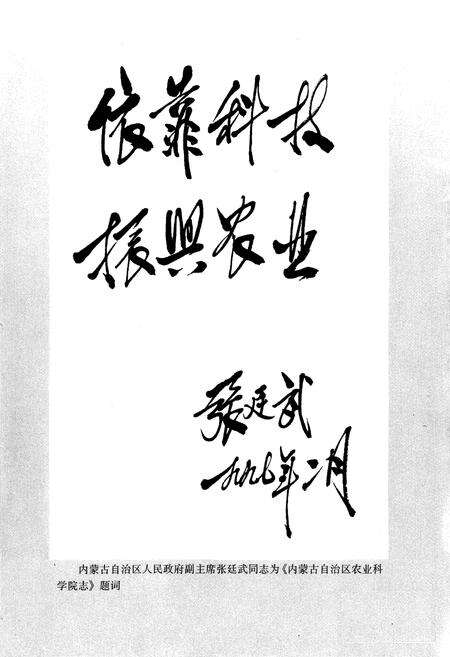 依靠科技
振兴农业
张廷武
一九九七年二月
内蒙古自治区人民政府副主席张廷武同志为《内蒙古自治区农业科
学院志》题词